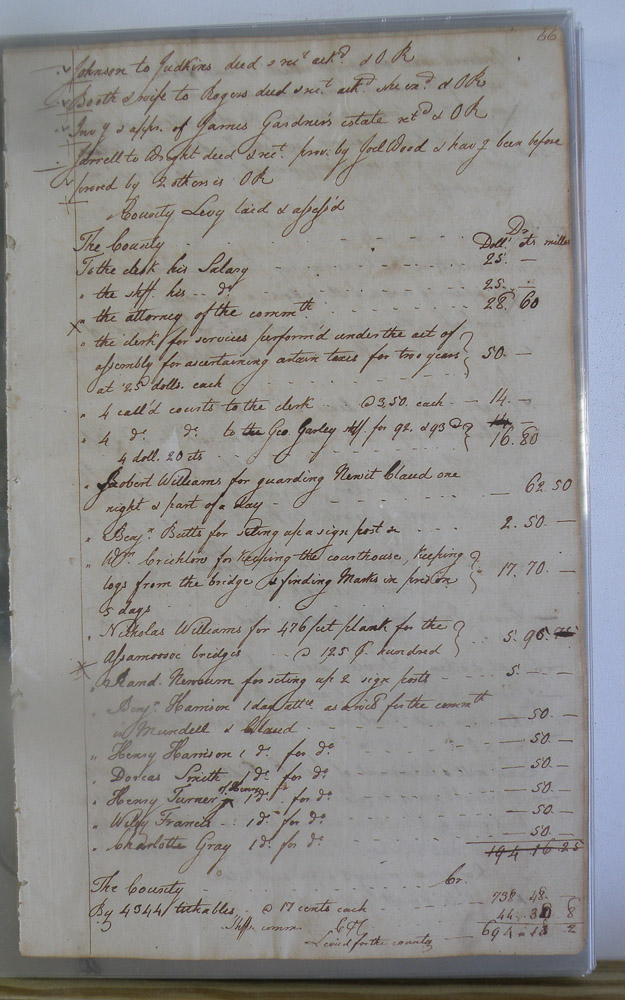 66
Johnson to Judkins deed & rect ackd & OR
Booth & wife to Rogers deed & rect ackd she exd & OR
Invy & appr. of James Gardner's estate retd & OR
Jarrell to Wright deed & rect. prov. by Joel Wood & havg been before
proved by 2 others is OR
County Levy laid & assess'd
Dr
The County Dolls cts mills
To the clerk his Salary 25. —
" the shff. his do 25. —
" the attorney of the commth 28. 60
" the clerk for services perform'd under the act of
assembly for ascertaining certain taxes for two years 50. —
at 25 dolls. each
" 4 call'd courts to the clerk @ 3,50. each 14. —
" 4 do do to the Geo. Gurley shff. for 92. & 93 @ 16. 80
4 doll. 20 cts
" Robert Williams for guarding Newit Claud one
night & part of a day 62 50
" Benjn Betts for seting up a sign post 2. 50. —
" Wm. Crichlow for keeping the courthouse, keeping
logs from the bridge & finding in prison 17. 70. —
5 days
" Nicholas Williams for 476 feet plank for the
Assamoosic bridges @ 125 P hundred 5. 95
" Rand. Newsum for seting up 2 sign posts 5. —
" Benjn. Harrison 1 day atta as a wits for the commth
vs Mundell & Claud — 50. —
" Henry Harrison 1 do. for do — 50. —
" Dorcas Smith 1 do. for do — 50. —
" Henry Turner of Henry 1 do. for do — 50. —
" Wiley Francis 1 do for do — 50. —
" Charlotte Gray 1 do for do — 50. —
194 16 25
The County Cr.
By 4344 tithables, @ 17 cents each 738. 48.
Shffs comm. 44. 30 8
Levied for the county 694. 18 2